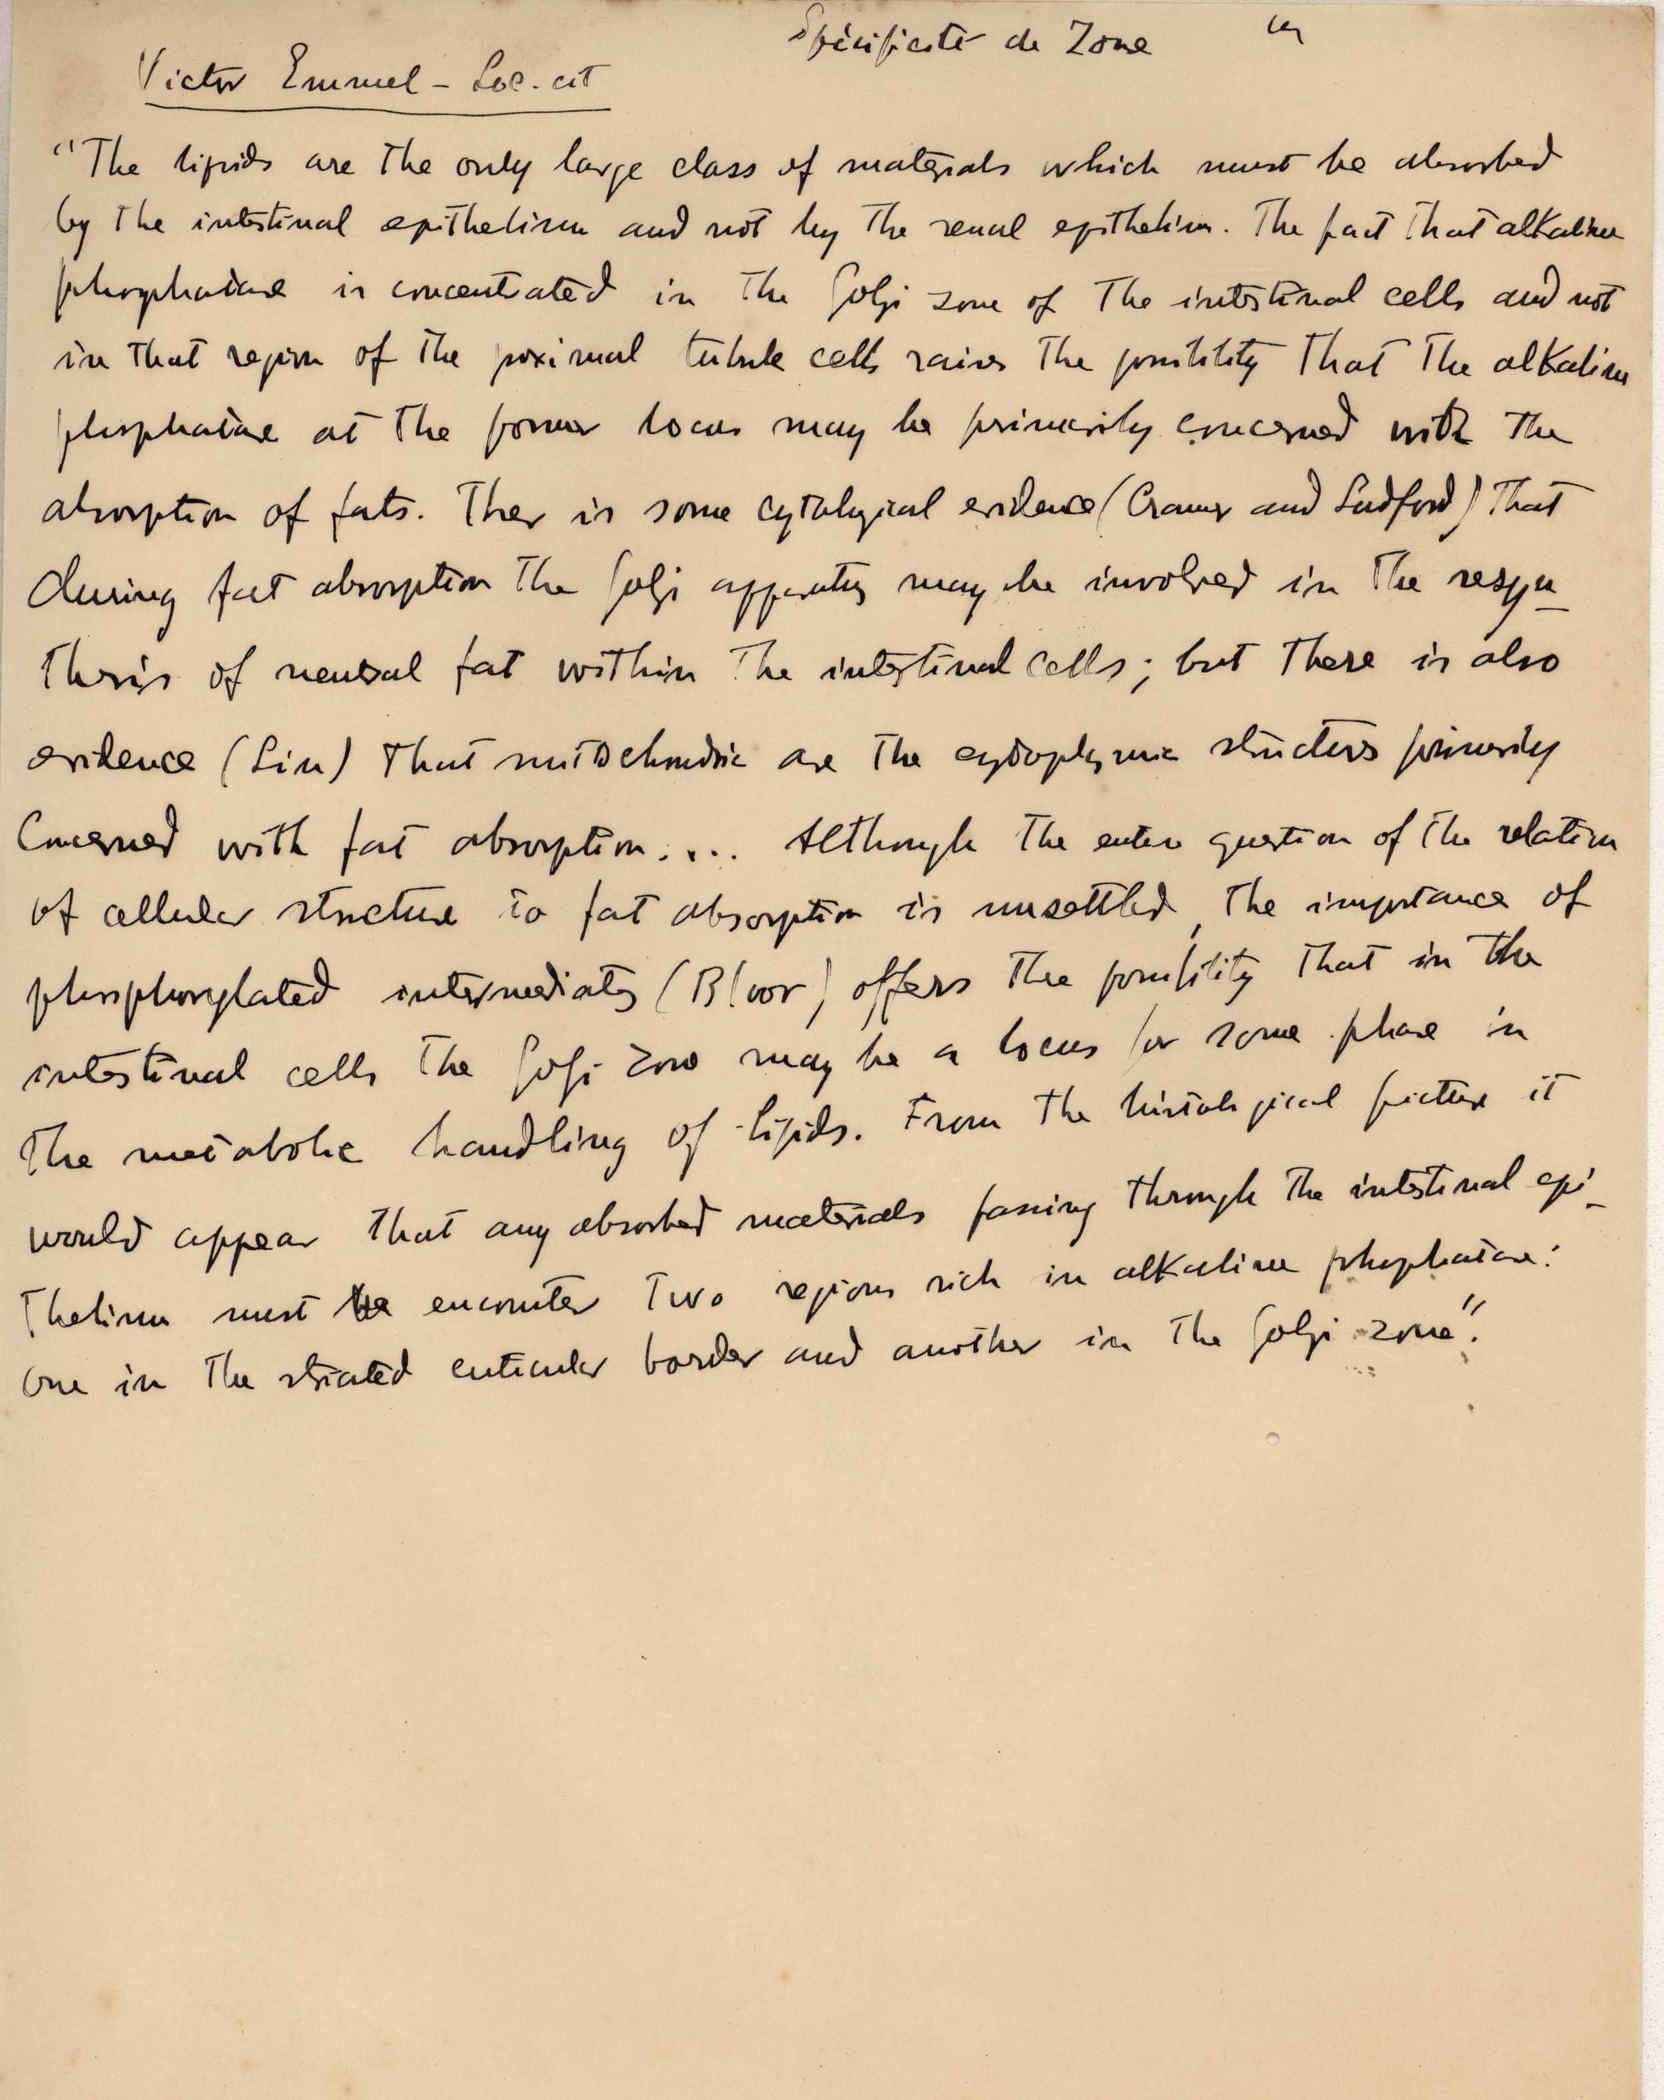 Spécificité de Zone
Victor Emmel - Loc. cit
"The lipids are the only large class of materials which must be absorbed
by the intestinal epithelium and not by the renal epithelium. The fact that alkaline
phosphatase is concentrated in the Golgi zone of the intestinal cells and not
in that region of the poximal tubule cells raises the possibility that the alkaline
phosphatase at the former locus may be primarily concerned with the
absorption of fats. Ther is some cytological evidence (Cramer and Ludford) that
during fat absorption the Golgi apparatus may be involved in the resyn-
thesis of neutral fat within the intestinal cells; but there is also
evidence (Lin) that mitochondria are the cytoplasmic structures primarily
concerned with fat absorption.... Although the entire question of the relation
of cellular structure to fat absorption is unsettled, the importance of
phosphorylated intermediates (Bloor) offers the possibility that in the
intestinal cells the Golgi zone may be a locus for some phase in
the metabolic handling of lipids. From the histological picture it
would appear that any absorbed materials passing through the intestinal epi-
thelium must encounter two regions rich in alkaline phosphatase:
one in the striated cuticular border and another in the Golgi zone".